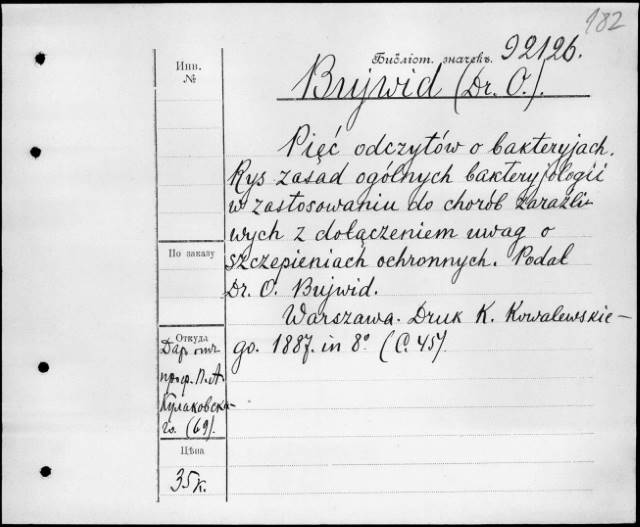 182
Библіот. значекъ. 92126.
Инв. №
Bujwid (Dr. O.).
Pięć odczytów o bakteryjach.
Rys zasad ogólnych bakteryjologii
w zastosowaniu do chorób zaraźli-
wych z dołączeniem uwag o
szczepieniach ochronnych. Podał
Dr. O. Bujwid.
Warszawa. Druk K. Kowalewskie-
go. 1887. in 8° (C. 45).
По заказу
Откуда
Дар отъ
проф. П. А.
Кулаковска-
го. (69).
Цѣна
35 к.